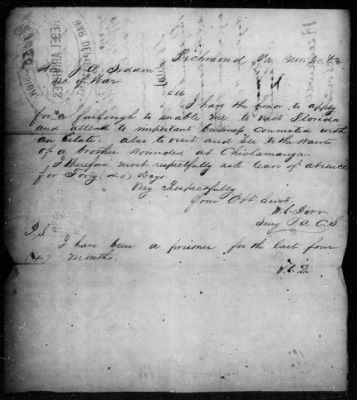 Richmond Va Nov 20 63
J. A. Seddon
Sec of War
Sir
I have the honor to apply
for a furlough to enable me to visit Florida
and attend to important business connected with
an Estate, also to visit and see to the wants
of a brother wounded at Chickamauga.
I therefore most respectfully ask leave of absence
for Forty (40) Days
Very Respectfully
Your Obt Servt
Surg P. A. C. S.
P.S. I have been a prisoner for the last four
(4) months.